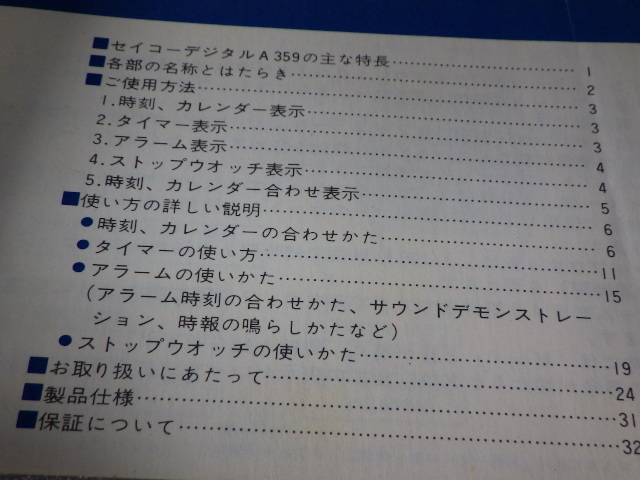 ■セイコーデジタルA359の主な特長…………………… 1
■各部の名称とはたらき…………………………………… 2
■ご使用方法………………………………………………… 3
1.時刻、カレンダー表示…………………………………… 3
2.タイマー表示……………………………………………… 3
3.アラーム表示……………………………………………… 4
4.ストップウオッチ表示…………………………………… 4
5.時刻、カレンダー合わせ表示…………………………… 5
■使い方の詳しい説明……………………………………… 6
●時刻、カレンダーの合わせかた………………………… 6
●タイマーの使い方………………………………………… 11
●アラームの使いかた……………………………………… 15
(アラーム時刻の合わせかた、サウンドデモンストレー
ション、時報の鳴らしかたなど)
●ストップウオッチの使いかた…………………………… 19
■お取り扱いにあたって…………………………………… 24
■製品仕様…………………………………………………… 31
■保証について……………………………………………… 32